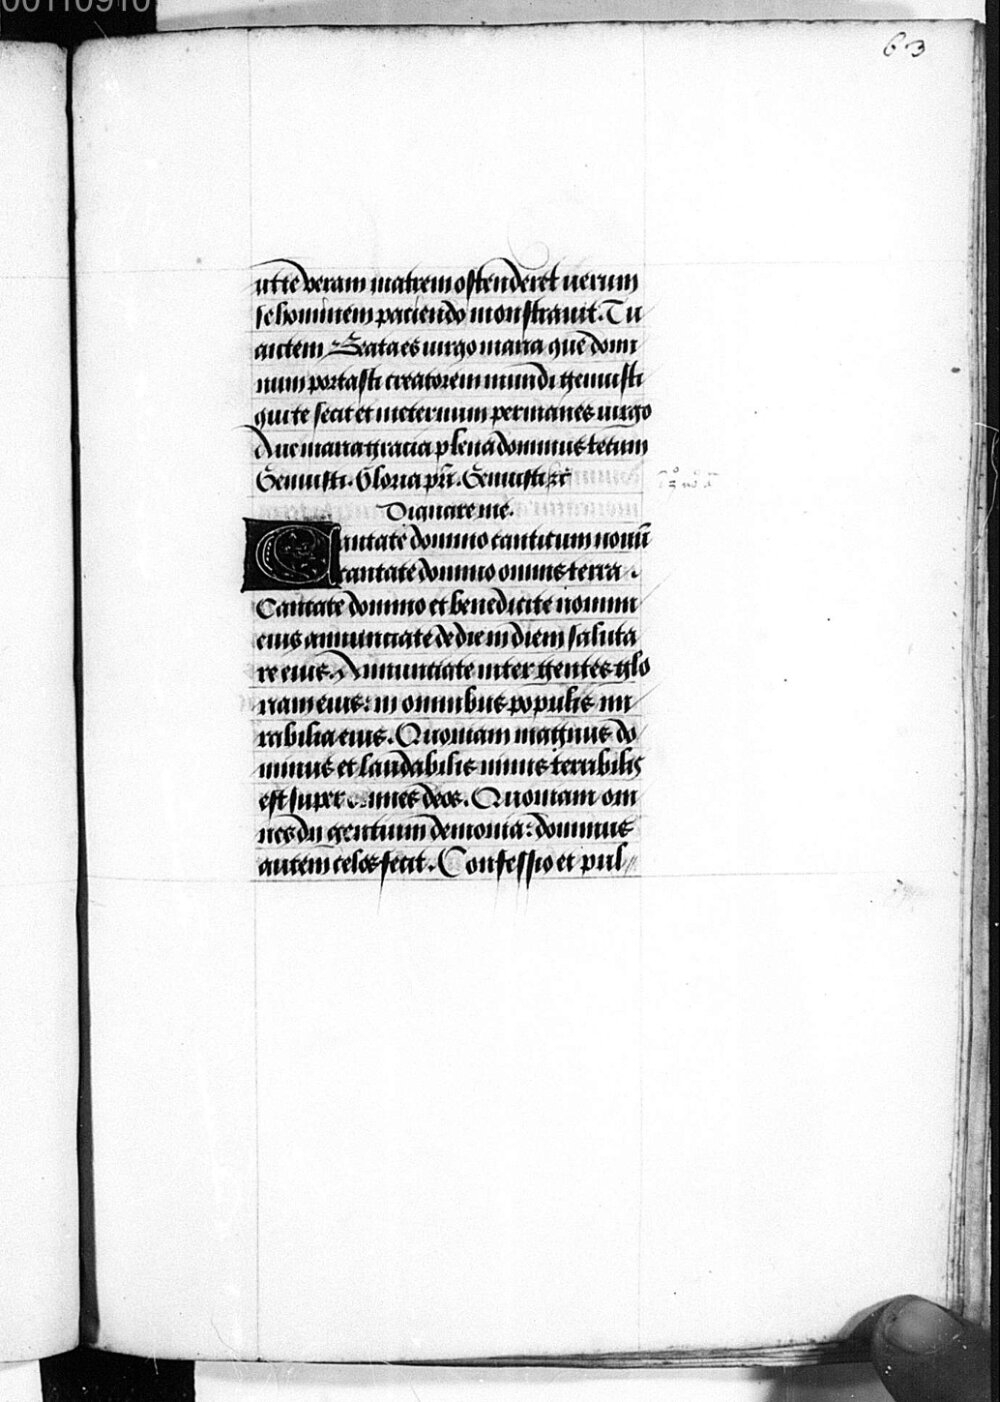 00110910
63
ut te veram matrem ostenderet uerum
se hominem paciendo monstrauit. Tu
autem Beata es uirgo maria que domi
num portasti creatorem mundi genuisti
qui te fecit et in eternum permanes uirgo
Aue maria gracia plena dominus tecum
Genuisti. Gloria pri. Genuisti
Dignare me.
Cantate domino canticum nouu
cantate domino omnis terra.
Cantate domino et benedicite nomini
eius annunciate de die in diem saluta
re eius. Annunciate inter gentes glo
riam eius: in omnibus populis mi
rabilia eius. Quoniam magnus do
minus et laudabilis nimis terribilis
est super omnes deos. Quoniam om
nes dii gentium demonia: dominus
autem celos fecit. Confessio et pul